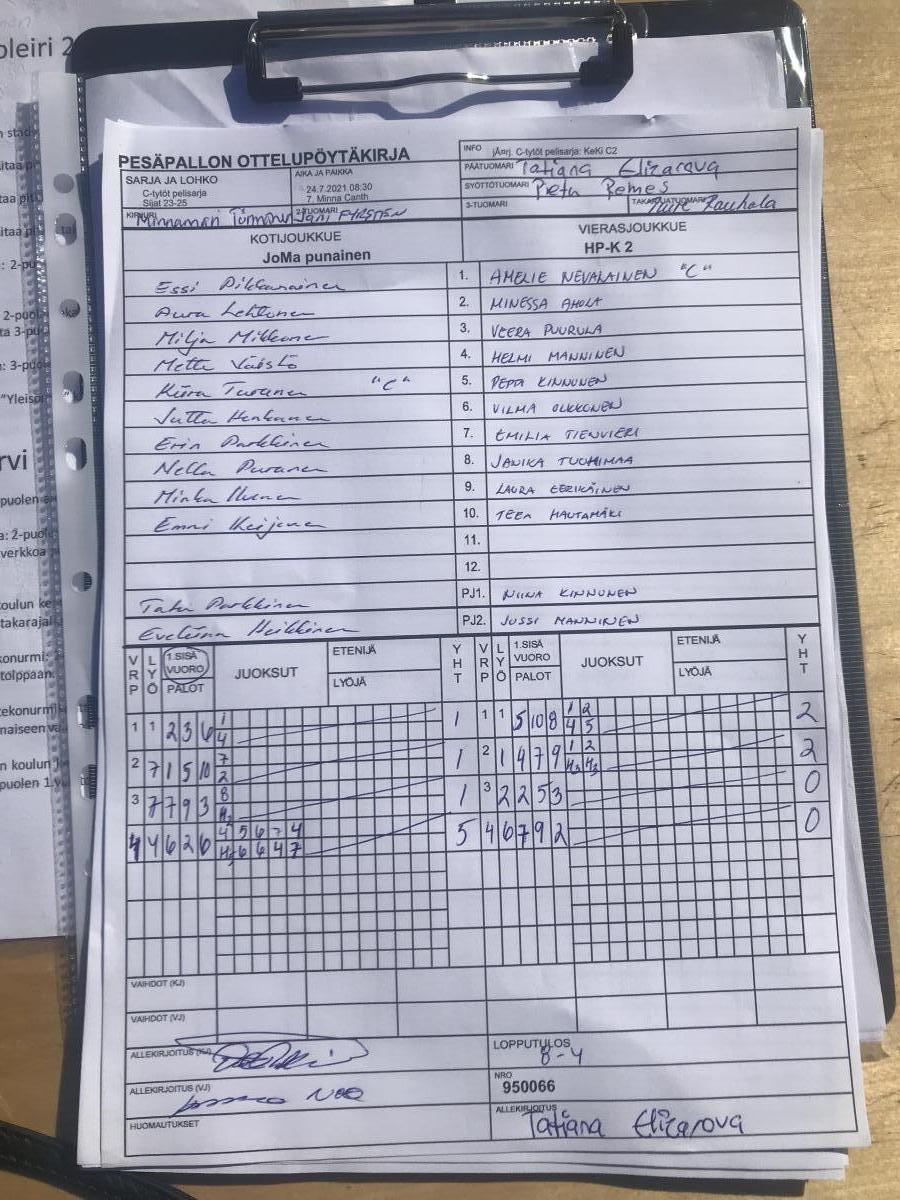 oleiri 2
PESÄPALLON OTTELUPÖYTÄKIRJA
INFO jÄnrj. C-tytöt pelisarja: KeKi C2
PÄÄTUOMARI Tatiana Elizarova
SARJA JA LOHKO
C-tytöt pelisarja
Sijat 23-25
AIKA JA PAIKKA
24.7.2021 08:30
7. Minna Canth
SYÖTTÖTUOMARI Pietu Remes
3-TUOMARI
TAKARAJATUOMARI Rauhala
KIRJURI Minnamari
2-TUOMARI Jani
KOTIJOUKKUE
JoMa punainen
VIERASJOUKKUE
HP-K 2
Essi Pikkarainen 1. AMELIE NEVALAINEN "C"
Aura Lehtonen 2. MINESSA AHOLA
Milja Mikkonen 3. VEERA PUURULA
Metta Väistö 4. HELMI MANNINEN
Kiira Turanen "C" 5. PEPPI KINNUNEN
Jutta Henkanen 6. VILMA OLKKONEN
Erin Parkkinen 7. EMILIA TIENVIERI
Nella Puranen 8. JANIKA TUOHIMAA
Minka 9. LAURA EERIKÄINEN
Emmi Keijonen 10. TEEA HAUTAMÄKI
11.
12.
Parkkinen PJ1. NIINA KINNUNEN
Eveliina Heikkinen PJ2. JUSSI MANNINEN
VRP LYÖ 1.SISÄ VUORO PALOT JUOKSUT ETENIJÄ LYÖJÄ YHT VRP LYÖ 1.SISÄ VUORO PALOT JUOKSUT ETENIJÄ LYÖJÄ YHT
1 1 2 3 6 1 1 1 1 5 10 8 1 2 2
4 4 5
2 7 1 5 10 7 1 2 1 4 7 9 1 2 2
2 H2 H3
3 7 7 9 3 8 1 3 2 2 5 3 0
H2
4 4 6 2 6 4 5 6 7 4 5 4 6 7 9 2 0
H5 6 6 4 7
VAIHDOT (KJ)
VAIHDOT (VJ)
ALLEKIRJOITUS (KJ)
LOPPUTULOS
8-4
ALLEKIRJOITUS (VJ)
NRO
950066
HUOMAUTUKSET
ALLEKIRJOITUS
Tatiana Elizarova